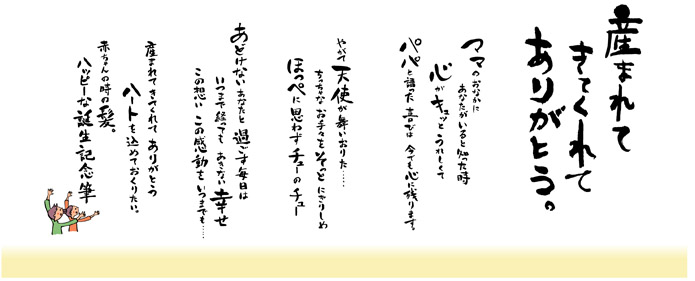 産まれて
きてくれて
ありがとう。
ママのおなかに
あなたがいると知った時
心がキュッとうれしくて
パパと語った喜びは今でも心に残ります。
やがて天使が舞いおりた……
ちっちゃなお手々をそっとにぎりしめ
ほっぺに思わずチューのチュー
あどけないあなたと過ごす毎日は
いつまで経ってもあきない幸せ
この想いこの感動をいつまでも……
産まれてきてくれてありがとう
ハートを込めておくりたい。
赤ちゃんの時の髪。
ハッピーな誕生記念筆